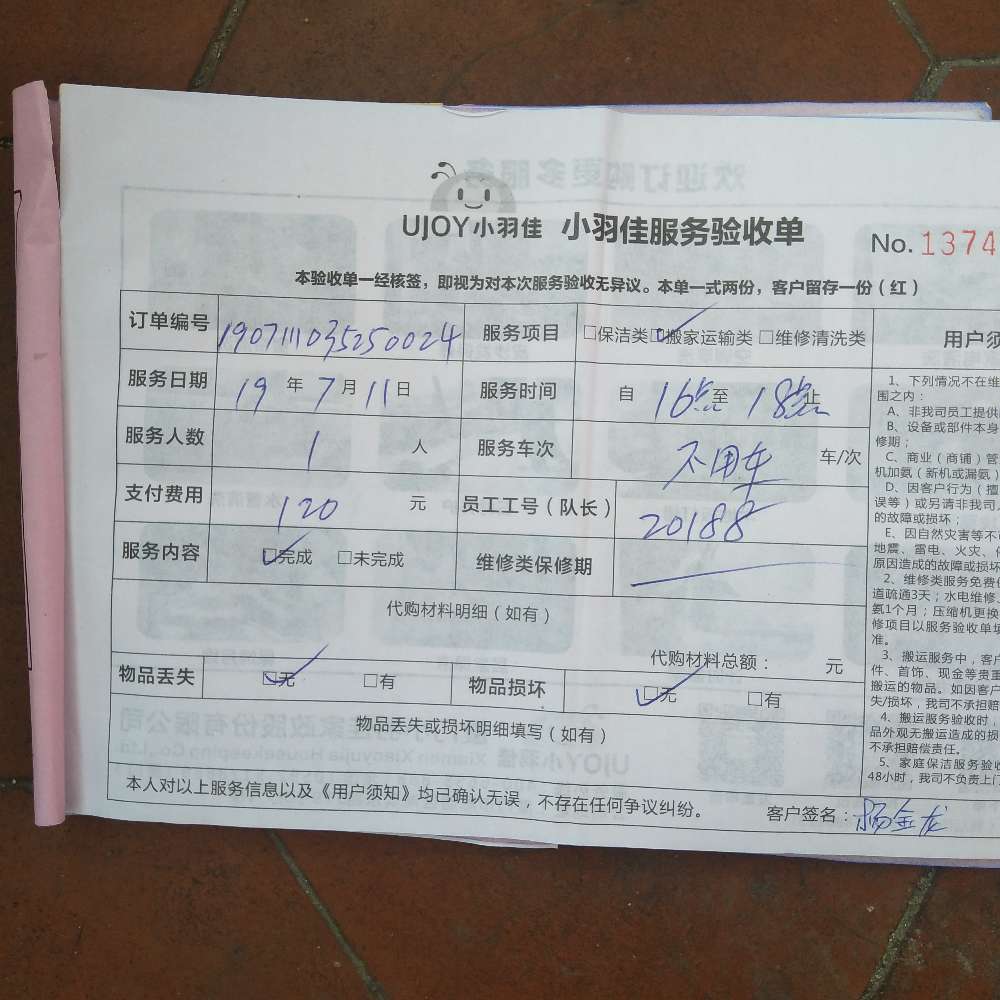 UJOY小羽佳 小羽佳服务验收单
No. 1374
本验收单一经核签，即视为对本次服务验收无异议。本单一式两份，客户留存一份（红）
订单编号 1907111035250024 服务项目 □保洁类 ☑搬家运输类 □维修清洗类
服务日期 19 年 7 月 11 日 服务时间 自 16点 至 18点 止
服务人数 1 人 服务车次 不用车 车/次
支付费用 120 元 员工工号（队长） 20188
服务内容 ☑完成 □未完成 维修类保修期
代购材料明细（如有）
代购材料总额： 元
物品丢失 ☑无 □有 物品损坏 ☑无 □有
物品丢失或损坏明细填写（如有）
本人对以上服务信息以及《用户须知》均已确认无误，不存在任何争议纠纷。 客户签名：杨金龙
用户须
1、下列情况不在维
围之内：
A、非我司员工提供
B、设备或部件本身
修期；
C、商业（商铺）管
机加氨（新机或漏氨）
D、因客户行为（擅
误等）或另请非我司
的故障或损坏；
E、因自然灾害等不
地震、雷电、火灾、
原因造成的故障或损坏
2、维修类服务免费
道疏通3天；水电维修、
氨1个月；压缩机更换
修项目以服务验收单
准。
3、搬运服务中，客户
件、首饰、现金等贵重
搬运的物品。如因客户
失/损坏，我司不承担赔
4、搬运服务验收时，
品外观无搬运造成的损
不承担赔偿责任。
5、家庭保洁服务验收
48小时，我司不负责上门